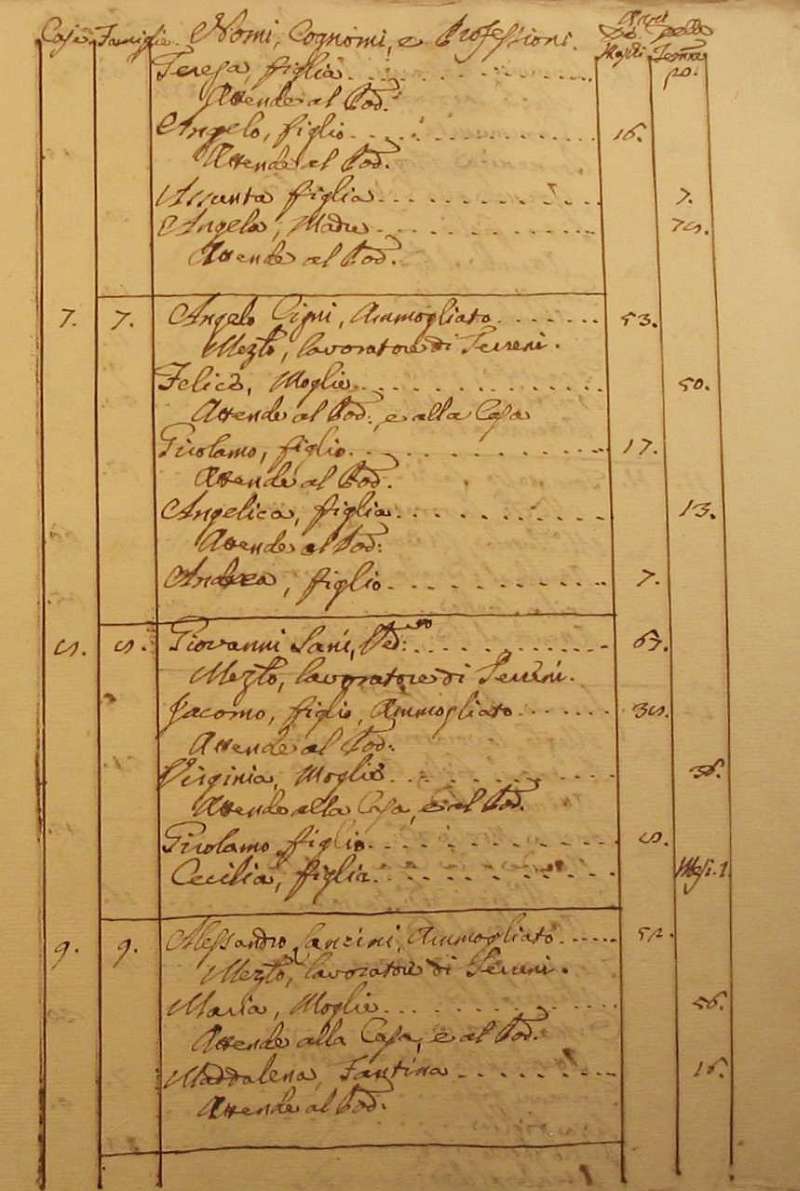 Case Famiglie. Nomi, Cognomi, e Professioni. Anni
De Maschi Delle Femine
Teresa, figlia
Attende al Pod.
Angelo, figlio 16.
Attende al Pod.
Assunta figlia 7.
Angela, Madre 78.
Attende al Pod.
7. 7. Angelo Cigni, Ammogliato 53.
Mezzo, lavoratore di Terreni.
Felice, Moglie 50.
Attende al Pod: e alla Casa
Girolamo, figlio 17.
Attende al Pod.
Angelica, figlia 13.
Attende al Pod:
Andrea, figlio 7.
8. 8. Giovanni Sani, Ved:vo
Mezzo, lavoratore di Terreni.
Jacomo, figlio, Ammogliato 38.
Attende al Pod:
Virginia, Moglie 36.
Attende alla Casa, e al Pod.
Girolamo figlio 8.
Cecilia, figlia Mesi. 1.
9. 9. Alessandro Ammogliato
Mezzo, lavoratore di Terreni.
Maria, Moglie 56.
Attende alla Casa, e al Pod.
Maddalena, Fantina 16.
Attende al Pod.